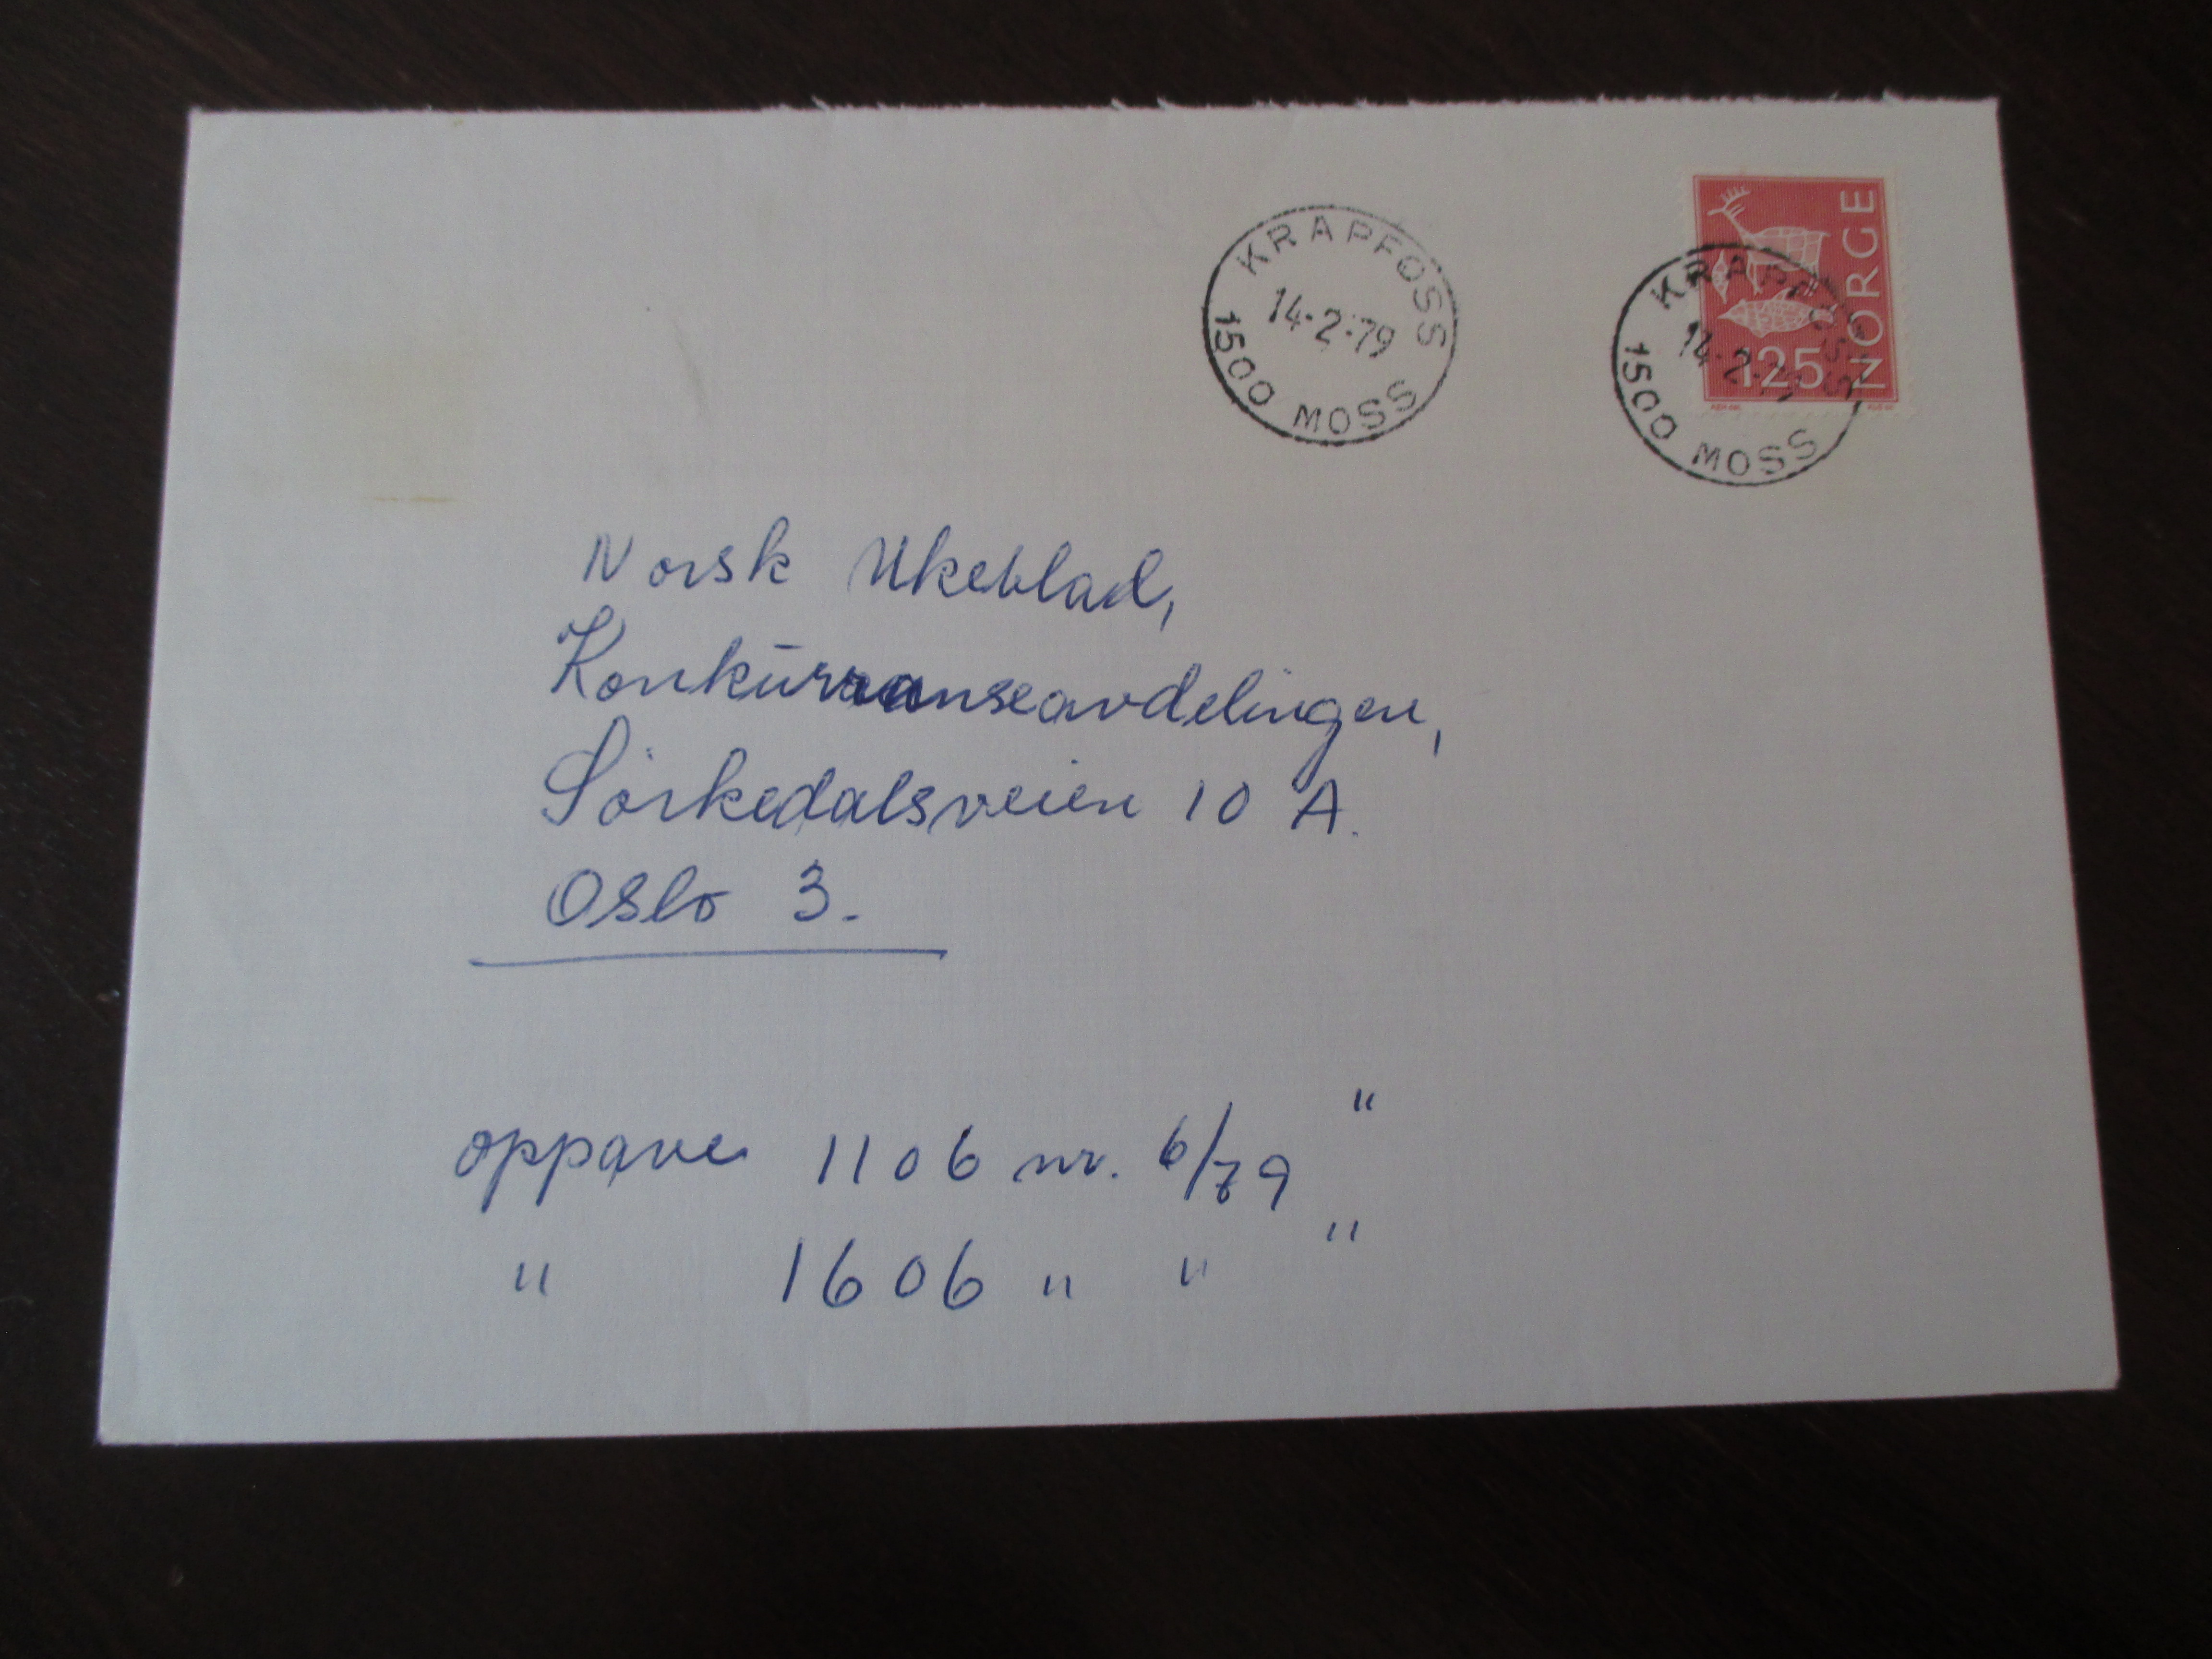 KRAPFOSS
14-2-79
1500 MOSS
NORGE
125
KRAPFOSS
14-2-79
1500 MOSS
Norsk Ukeblad,
Konkurranseavdelingen,
Sörkedalsveien 10 A.
Oslo 3.
oppave 1106 nr. 6/79 "
" 1606 " " "